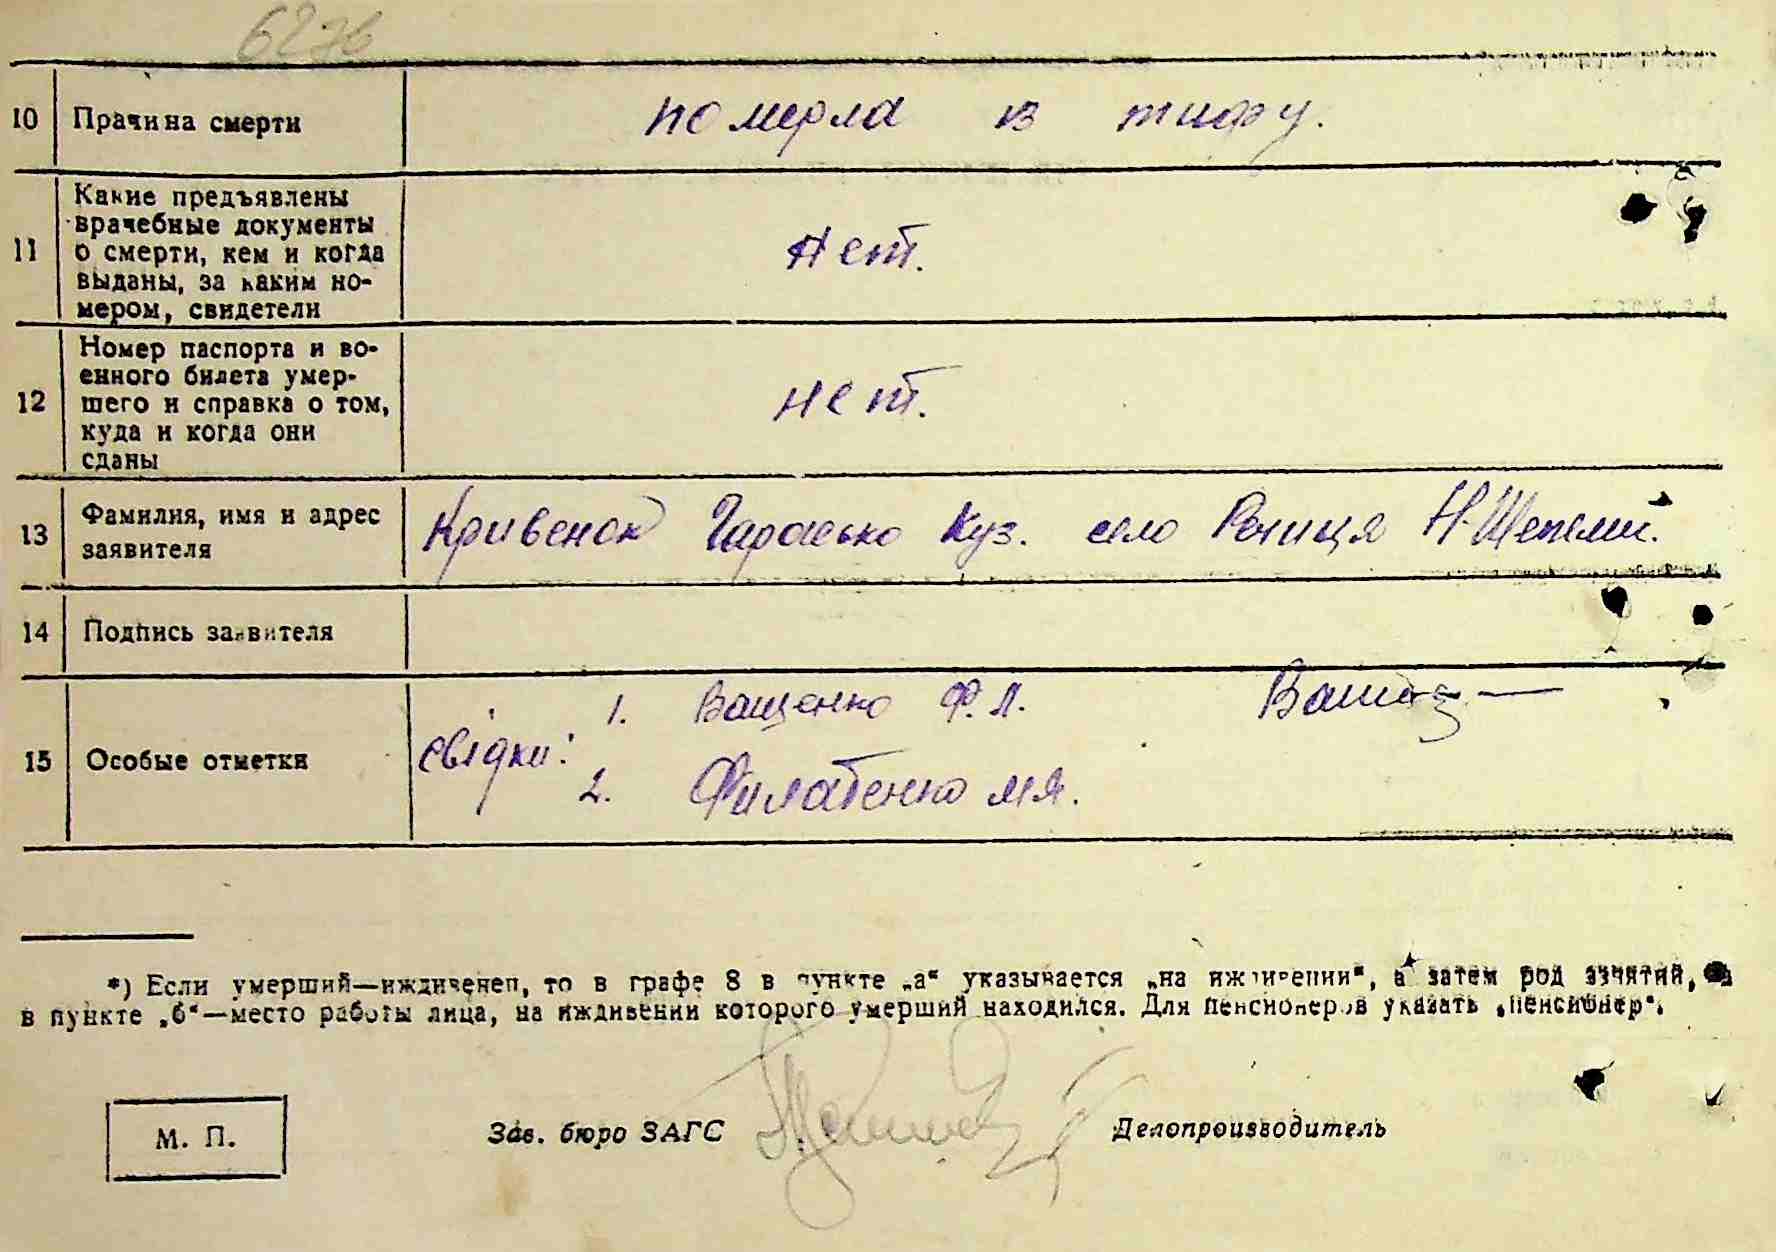 6276
10 Причина смерти померла из тифу.
11 Какие предъявлены
врачебные документы
о смерти, кем и когда
выданы, за каким но-
мером, свидетели
нет.
12 Номер паспорта и во-
енного билета умер-
шего и справка о том,
куда и когда они
сданы
нет.
13 Фамилия, имя и адрес
заявителя
Кривенок Гарасько Куз. село
14 Подпись заявителя
15 Особые отметки
свідки:
1. Ващенко Ф. Л.
2. Филатенко М Я.
*) Если умерший—иждивенец, то в графе 8 в пункте „а“ указывается „на иждивении“, а затем род занятий, а
в пункте „б“—место работы лица, на иждивении которого умерший находился. Для пенсионеров указать „пенсионер“.
М. П. Зав. бюро ЗАГС Делопроизводитель